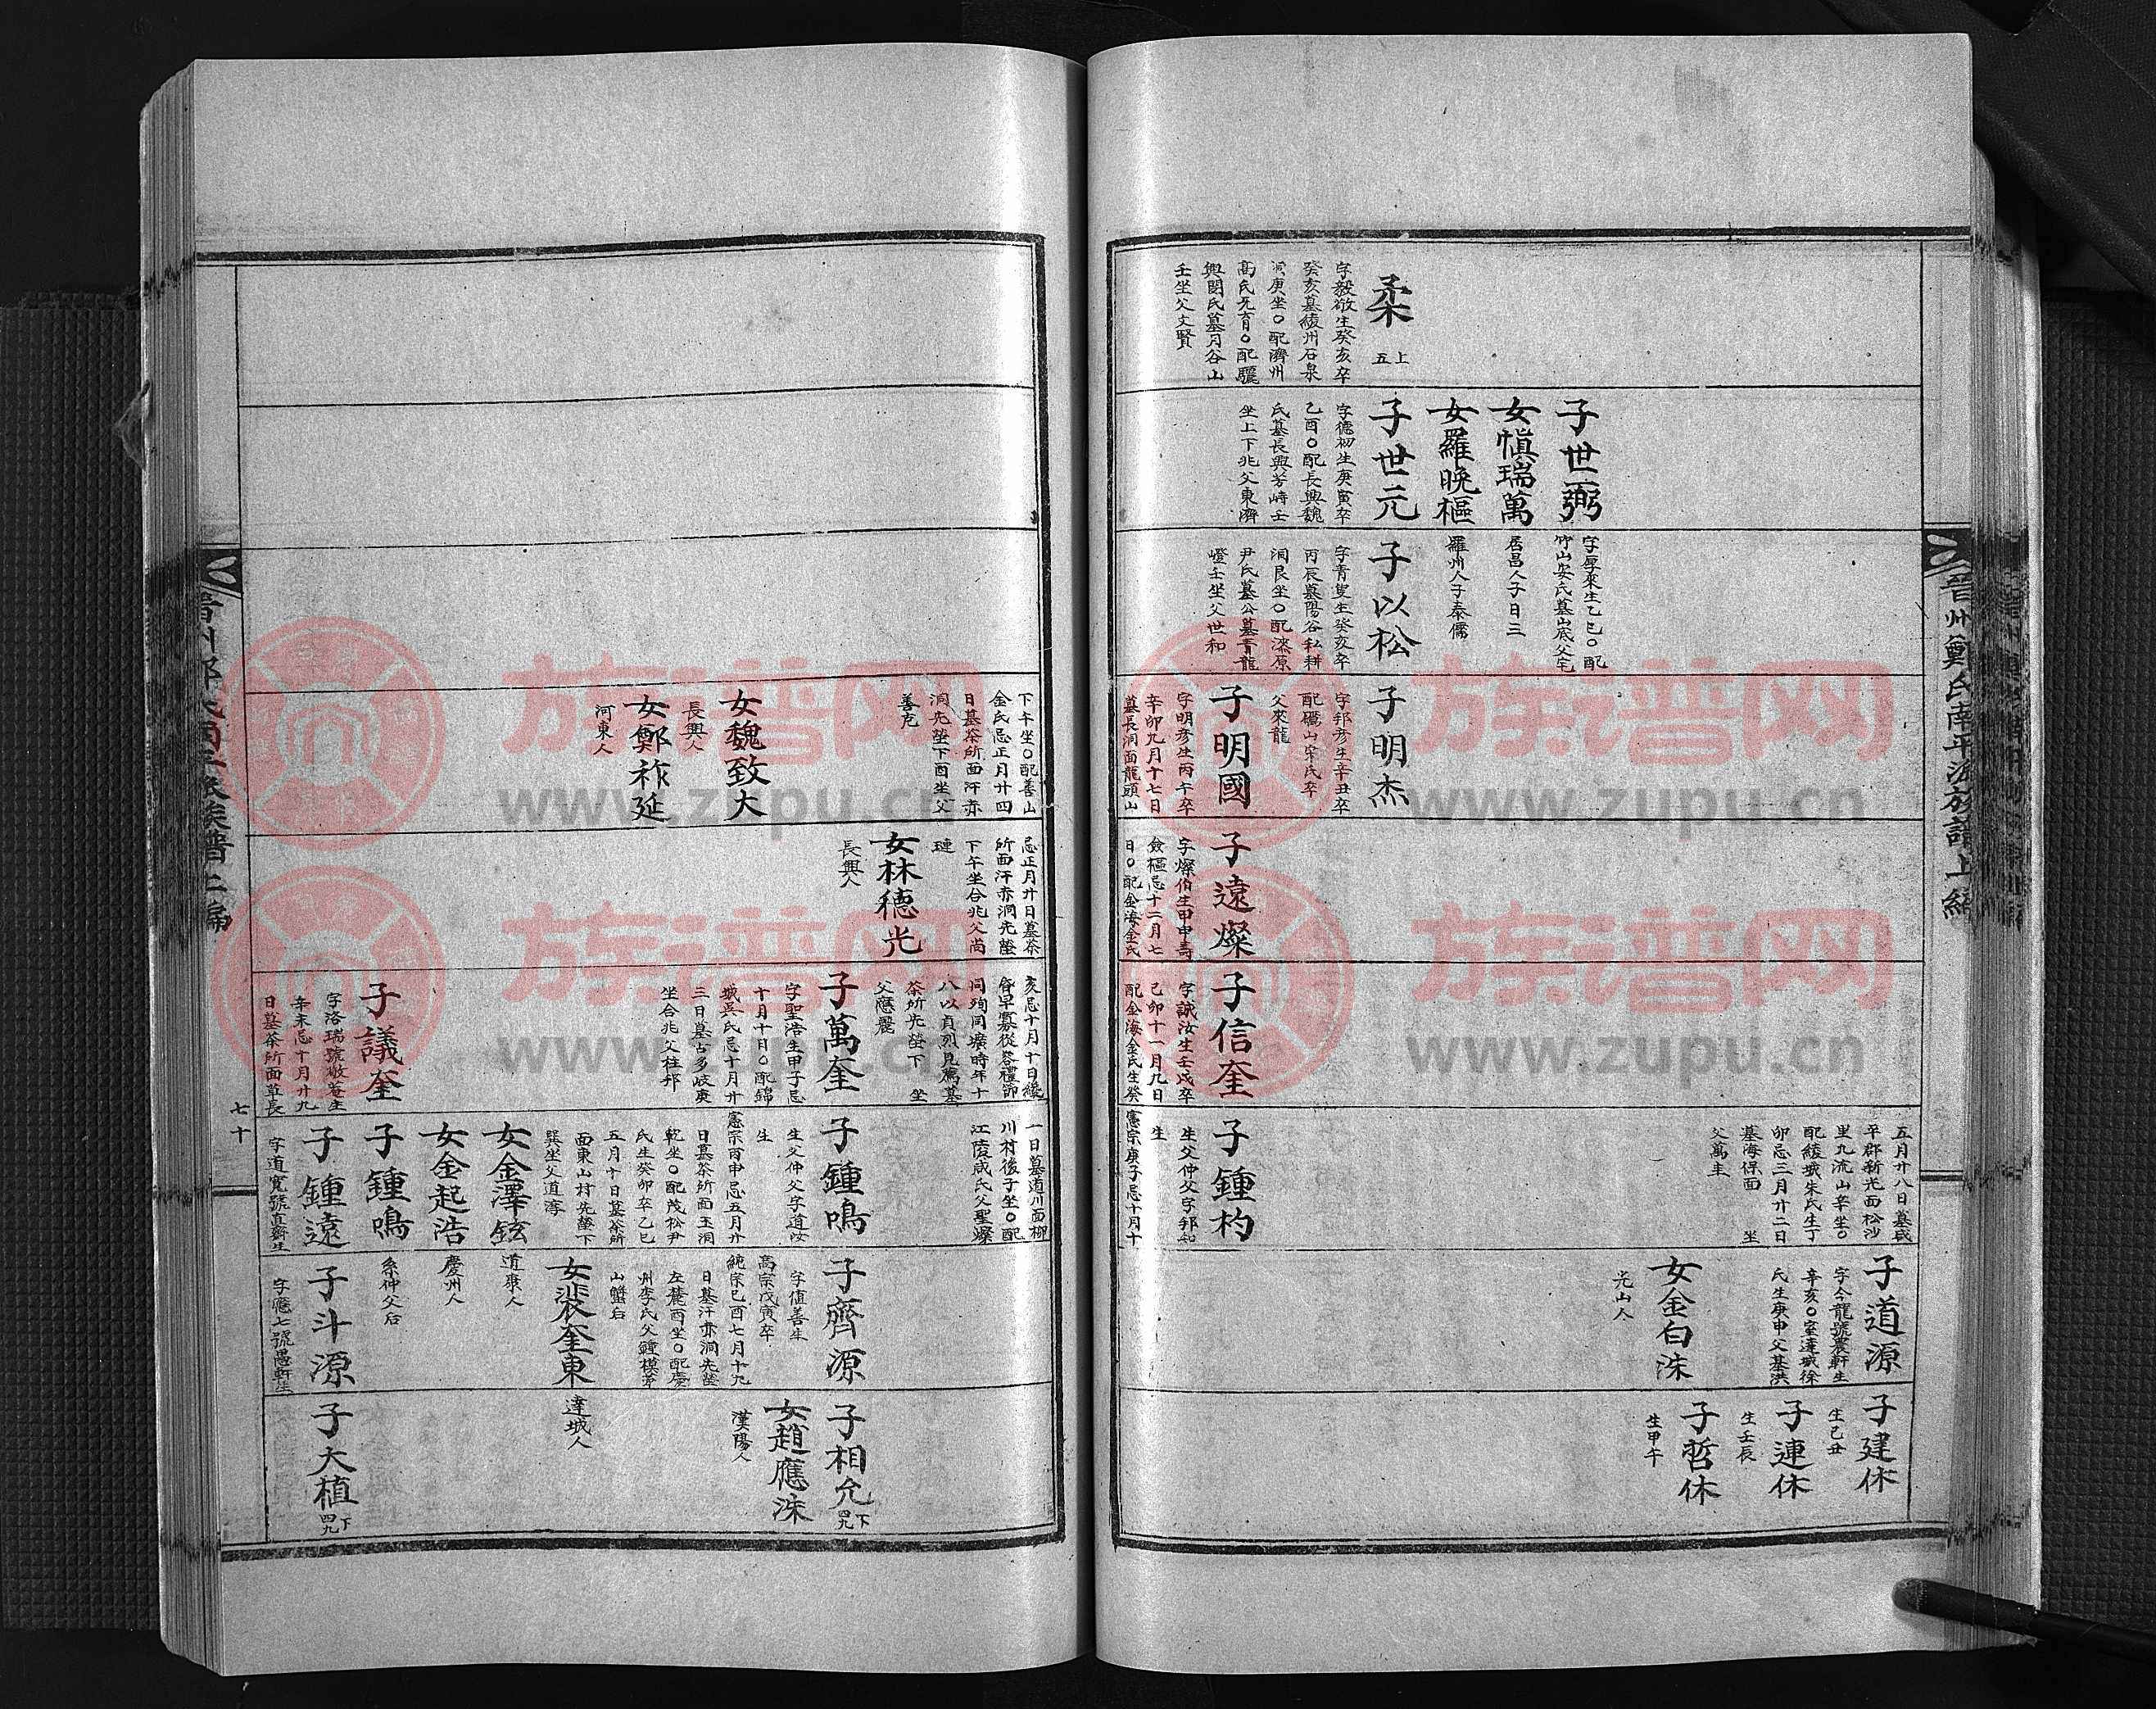 晉州鄭氏南平派族譜上編
五月廿八日墓咸
平郡新光面松沙
里九流山辛坐○
配綾城朱氏生丁
卯忌三月廿二日
墓海保面 坐
父萬圭
子道源
字今龍號農軒生
辛亥○室達城徐
氏生庚申父基洪
女金白洙
光山人
子建休
生己丑
子連休
生壬辰
子哲休
生甲午
柔
上五
字毅敬生癸亥卒
癸亥墓綾州石泉
洞庚坐○配濟州
高氏无育○配驪
興閔氏墓月谷山
壬坐父文賢
子世弼
字厚來生乙巳○配
竹山安氏墓山底父宅
女愼瑞萬
居昌人子日三
女羅晩樞
羅州人子泰儒
子世元
字德初生庚寅卒
乙酉○配長興魏
氏墓長興芳峙壬
坐上下兆父東濟
子以松
字青叟生癸亥卒
丙辰墓陽谷私耕
洞艮坐○配漆原
尹氏墓公墓青龍
嶝壬坐父世和
子明杰
字邦彦生辛丑卒
配礪山宋氏卒
父來龍
子明國
字明彦生丙午卒
辛卯九月十七日
墓長洞面龍頭山
子遠燦
字燦伯生甲申壽
僉樞忌十二月七
日○配金海金氏
子信奎
字誠汝生壬戌卒
己卯十一月九日
配金海金氏生癸
子鍾杓
生父仲父字邦知
生
憲宗庚子忌十月十
下午坐○配善山
金氏忌正月廿四
日墓茶所面汗赤
洞先塋下酉坐父
善克
女魏致大
長興人
女鄭祚延
河東人
忌正月廿日墓茶
所面汗赤洞先塋
下午坐合兆父尚
璉
女林德光
長興人
亥忌十月十日纔
䏌早寡從容禮節
同殉同壙時年十
八以貞烈見篤墓
茶所先塋下 坐
父應麗
子萬奎
字聖浩生甲子忌
十月十日○配錦
城吳氏忌十月廿
三日墓古多岐庚
坐合兆父柱邦
子議奎
字洛瑞號敬菴生
辛未忌十月廿九
日墓茶所面草長
一日墓道川面柳
川村後子坐○配
江陵咸氏父聖燦
子鍾鳴
生父仲父字道汝
生
憲宗丙申忌五月廿
日墓茶所面玉洞
乾坐○配茂松尹
氏生癸卯卒乙巳
五月十日墓茶所
面東山村先塋下
巽坐父道濤
女金澤鉉
道康人
女金起浩
慶州人
子鍾鳴
系仲父后
子鍾遠
字道寬號直齋生
子齊源
字値善生
高宗戊寅卒
純宗己酉七月十九
日墓汗赤洞先塋
左麓酉坐○配慶
州李氏父鍾模茅
山蟹后
女裴奎東
達城人
子斗源
字應七號愚軒生
子相允
下四九
女趙應洙
漢陽人
子大植
下四九
七十
晉州鄭氏南平派族譜上編
族谱网
www.zupu.cn
族谱网
www.zupu.cn
族谱网
www.zupu.cn
族谱网
www.zupu.cn